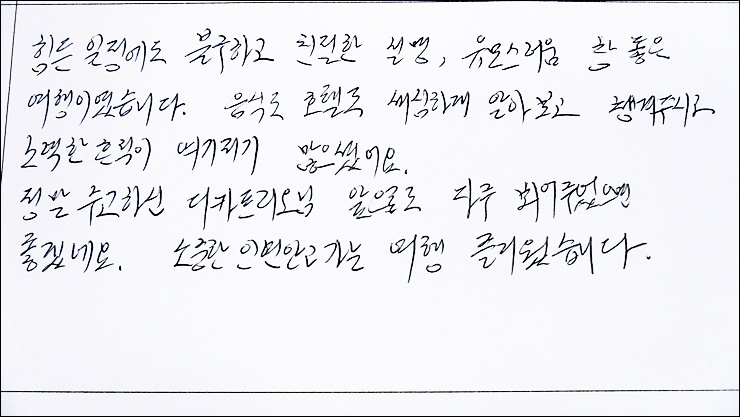 힘든 일정에도 불구하고 친절한 설명, 유모스러움 참 좋은
여행이였습니다. 음식도 호텔도 세심하게 알아보고 챙겨주시고
노력한 흔적이 여기저기 많으셨어요.
정말 수고하신 디카프리오님 앞으로도 자주 뵈어주었으면
좋겠네요. 소중한 인연안고가는 여행 즐거웠습니다.